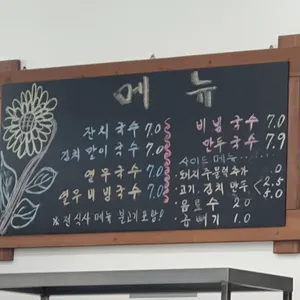 메뉴
잔치국수 7.0
김치말이국수 7.0
열무국수 7.0
열무비빔국수 7.0
※ 전식사 메뉴 불고기 포함!
비빔국수 7.0
만두국수 7.9
사이드메뉴...
돼지주물럭추가 .0
·고기, 김치만두 < 2.5 5.0
·음료수 2.0
·곱빼기 1.0